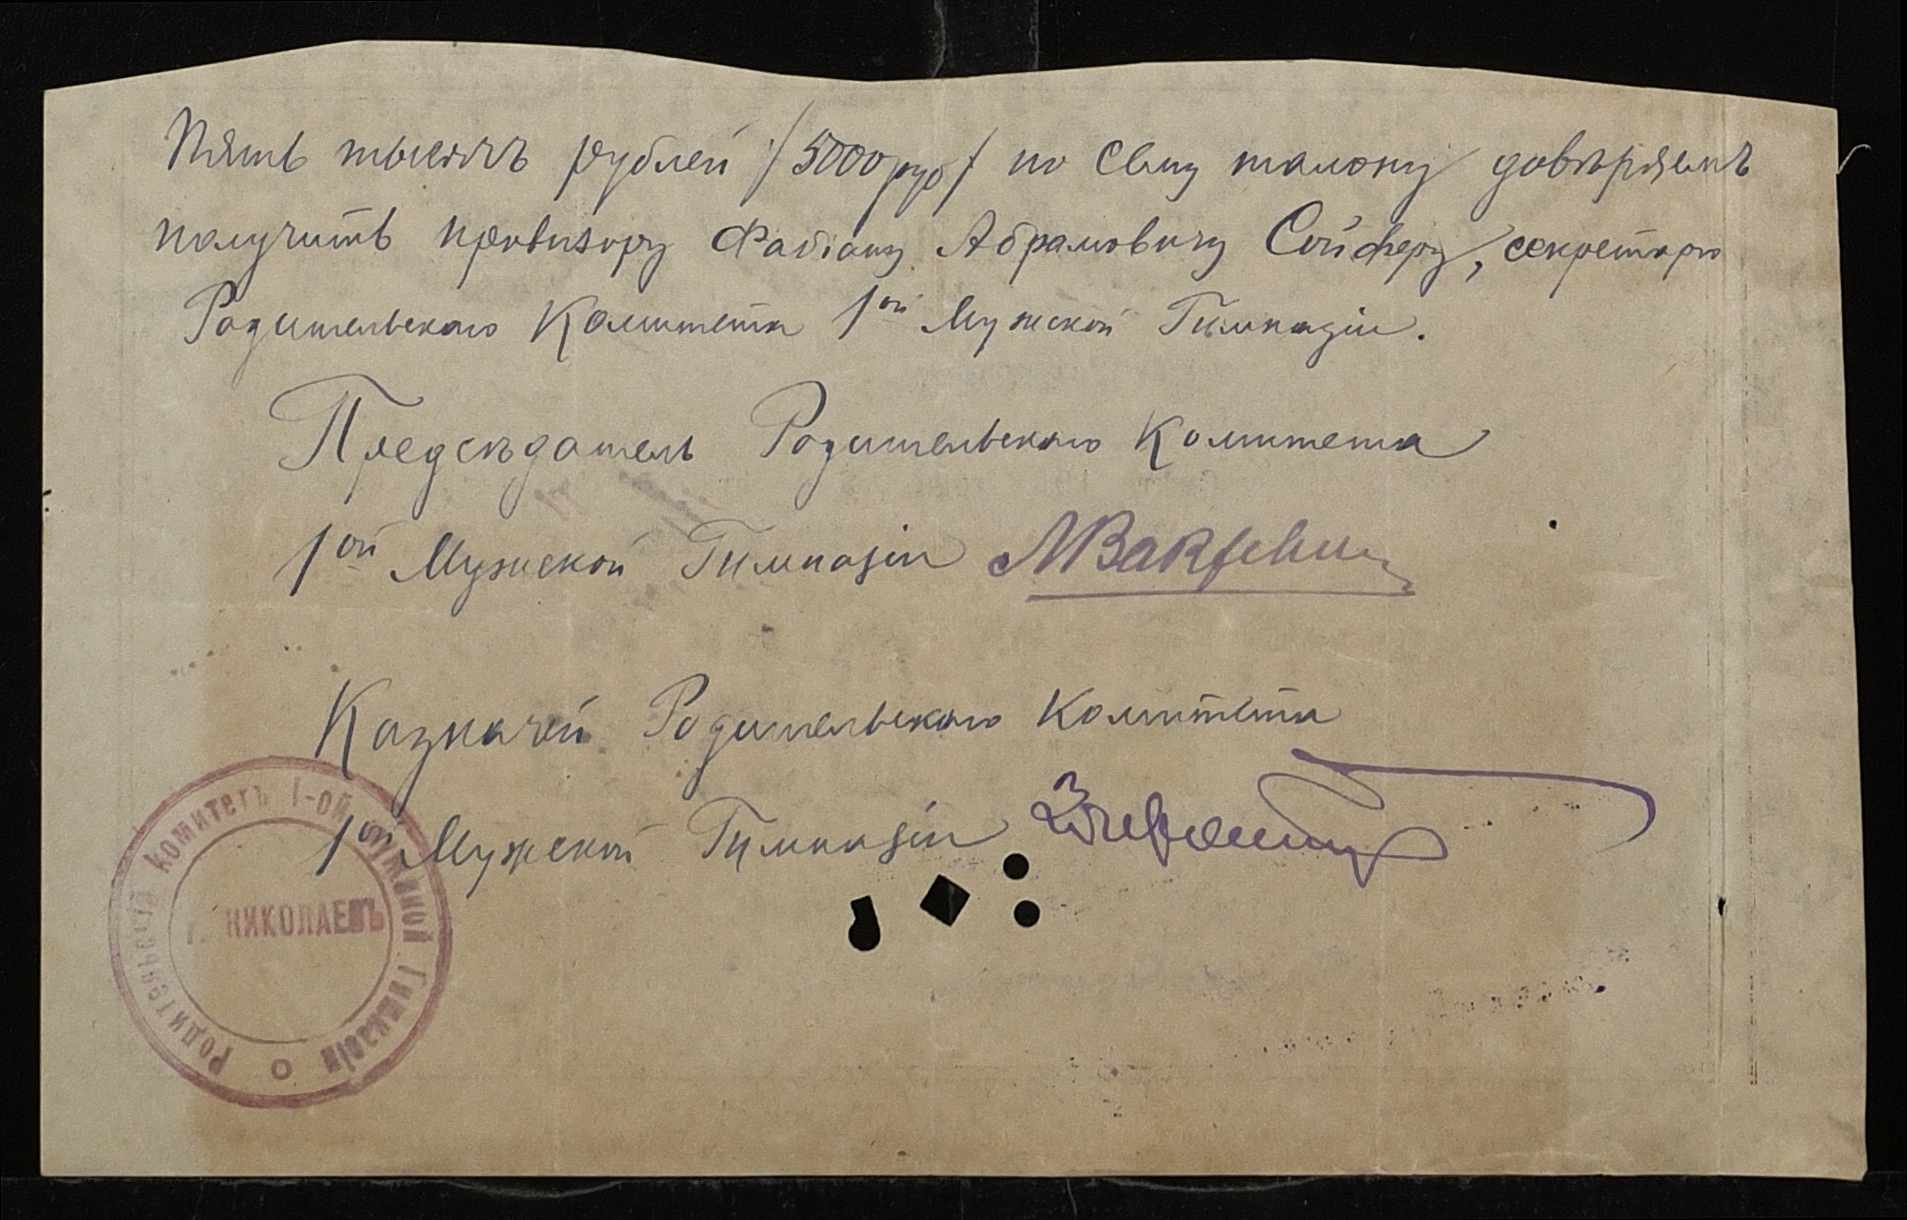 Пять тысячъ рублей /5000 руб/ по сему талону довѣряемъ
получить провизору Фабіану Абрамовичу Сойферу, секретарю
Родительскаго Комитета 1ой Мужской Гимназіи.
Предсѣдатель Родительскаго Комитета
1ой Мужской Гимназіи
Казначей Родительскаго Комитета
1ой Мужской Гимназіи
Родительскій Комитетъ 1-ой Мужской Гимназіи
г. НИКОЛАЕВЪ